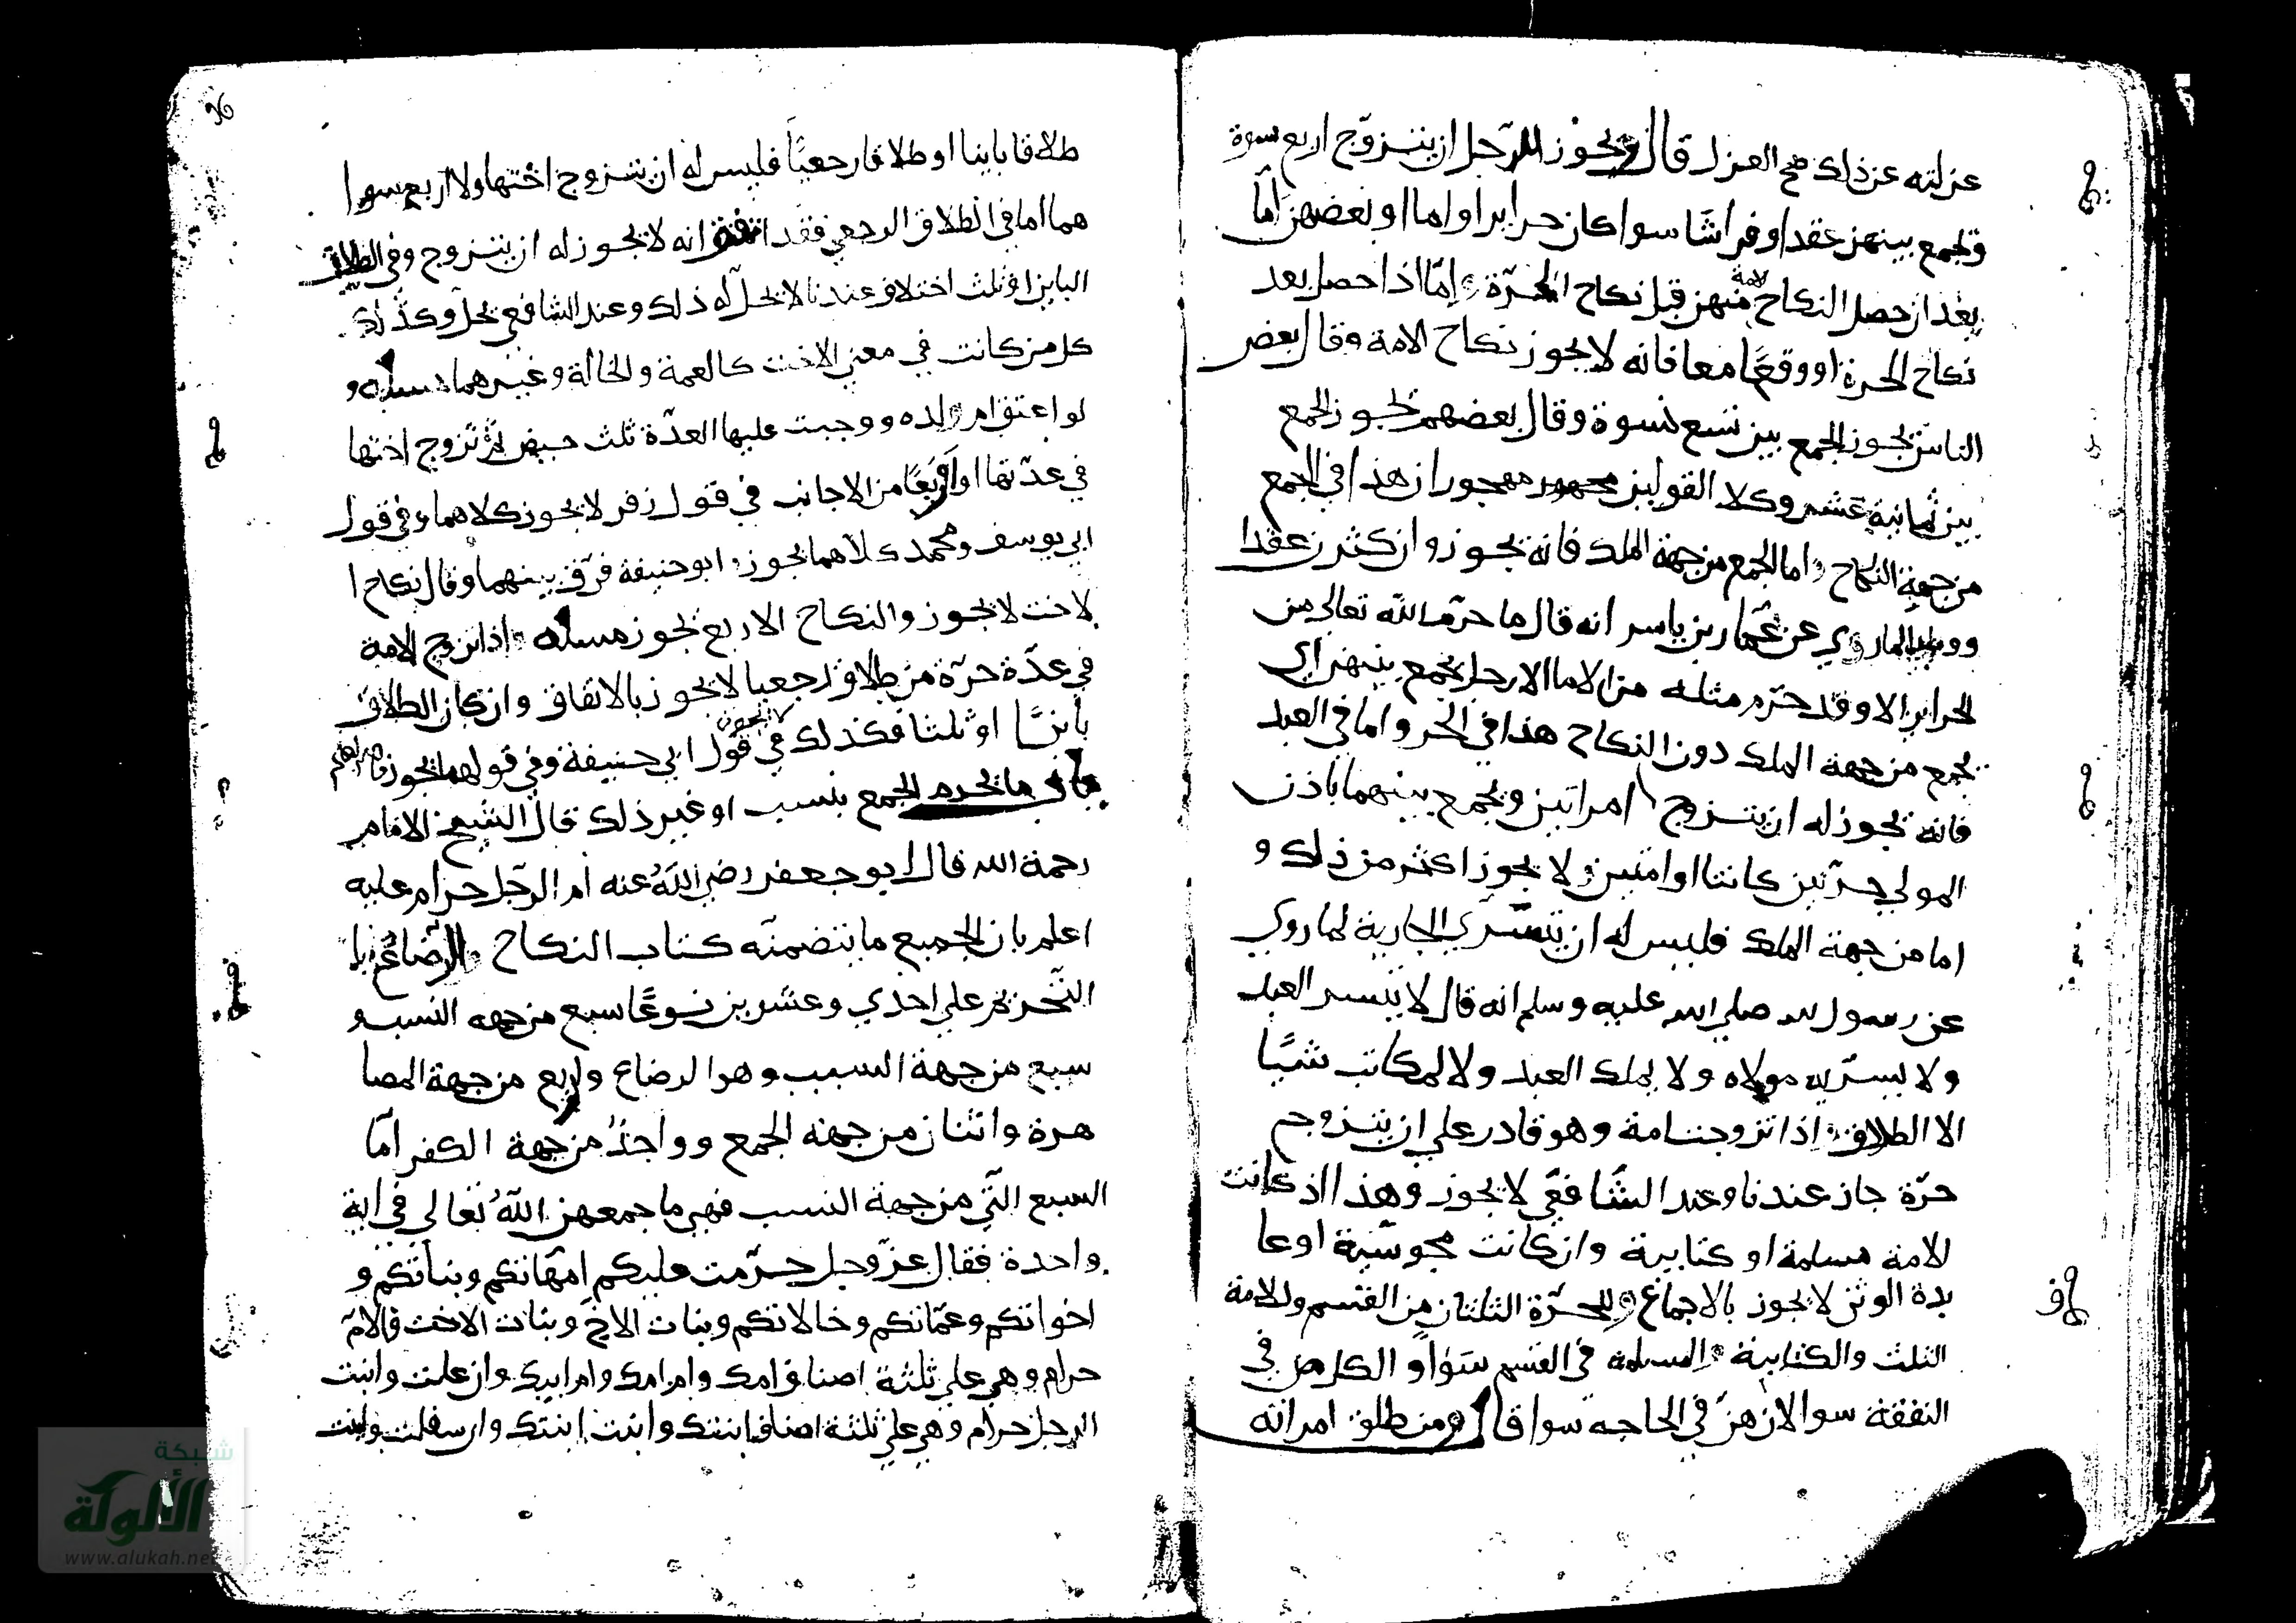 عزلته عن ذلك صح العزل قال ويجوز للرجل ان يتزوج اربع نسوة
وتجمع بينهن عقدا وفراشا سوا كان حرايرا او اما او بعضهن اما
بعد ان حصل النكاح لامة منهن قبل نكاح الحرة و اما اذا حصل بعد
نكاح الحرة او وقعا معا فانه لا يجوز نكاح الامة وقال بعض
الناس يجوز الجمع بين تسع نسوة وقال بعضهم يجوز الجمع
بين ثمانية عشر وكلا القولين مهجوران هذا في الجمع
من جهة النكاح و اما الجمع من جهة الملك فانه يجوز وان كثرن عقدا
ووطيا لما روي عن عمار بن ياسر انه قال ما حرم الله تعالى من
الحراير الا وقد حرم مثله من الاما الا رجل يجمع بينهن اي
يجمع من جهة الملك دون النكاح هذا في الحر و اما في العبد
فانه يجوز له ان يتزوج امراتين ويجمع بينهما باذن
المولي حرتين كانتا او امتين ولا يجوز اكثر من ذلك و
اما من جهة الملك فليس له ان يتسري الجارية لما روي
عن رسول الله صلي الله عليه وسلم انه قال لا يتسر العبد
ولا يسريه مولاه ولا يملك العبد ولا المكاتب شيا
الا الطلاق و اذا تزوجت امة وهو قادر علي ان يتزوج
حرة جاز عندنا وعند الشافعي لا يجوز وهذا اذ كانت
لامة مسلمة او كتابية وان كانت مجوسية او عا
بدة الوثن لا يجوز بالاجماع وللحرة الثلثان من القسم وللامة
الثلث والكتابية والمسلمة في القسم سواو الكل من في
النفقة سوا لان هن في الحاجه سوا قال ومن طلق امراته
96
طلاقا باينا او طلاقا رجعيا فليس له ان يتزوج اختها ولا اربع سوا
هما اما في الطلاق الرجعي فقد اتفق انه لا يجوز له ان يتزوج وفي الطلاق
الباين او ثلث اختلاف عندنا لا يحل له ذلك وعند الشافعي يحل وكذلك
كل من كانت في معني الاخت كالعمة والخالة وغيرهما مسله و
لو اعتق ام ولده ووجبت عليها العدة ثلث حيض ثم تزوج اختها
في عدتها او اربعا من الاجانب في قول زفر لا يجوز كلاهما وفي قول
ابي يوسف ومحمد كلاهما يجوز و ابو حنيفة فرق بينهما وقال نكاح ا
لاخت لا يجوز والنكاح الاربع يجوز مسله و اذا تزوج الامة
في عدة حرة من طلاق رجعيا لا يجوز بالاتفاق وان كان الطلاق
باينا او ثلثا فكذلك لا يجوز في قول ابي حنيفة وفي قولهما يجوز
باب ما يحرم الجمع بنسب او غير ذلك قال الشيخ الامام
رحمة الله قال ابو جعفر رضي الله عنه ام الرجل حرام عليه
اعلم بان الجميع ما يتضمنه كتاب النكاح والرضاع با
التحريم علي احدي وعشرين نوعا سبع من جهه النسب و
سبع من جهة السبب وهو الرضاع واربع من جهة المصا
هرة واثنان من جهة الجمع وواحد من جهة الكفر اما
السبع التي من جهة النسب فهي ما جمعهن الله تعالي في اية
واحدة فقال عز وجل حرمت عليكم امهاتكم وبناتكم و
اخواتكم وعماتكم وخالاتكم وبنات الاخ وبنات الاخت فالام
حرام وهي علي ثلثة اصناف امك وام امك وام ابيك وان علت وابنت
الرجل حرام وهي علي ثلثة اصناف ابنتك وابنت ابنتك وان سفلت وابنت
شبكة
الألوكة
www.alukah.net